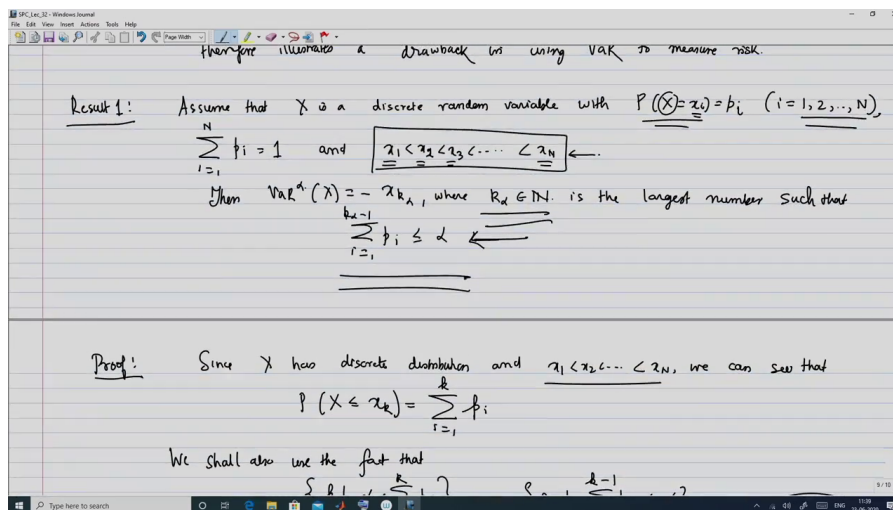 SPC_Lec_32 - Windows Journal
File Edit View Insert Actions Tools Help
Page Width
therefore illustrates a drawback in using VaR to measure risk.
Result 1: Assume that X is a discrete random variable with P(X = x_i) = p_i (i = 1, 2, .., N),
∑_{i=1}^{N} p_i = 1 and x_1 < x_2 < x_3 < ---- < x_N ←
Then VaR^α(X) = - x_{k_α}, where k_α ∈ ℕ. is the largest number such that
∑_{i=1}^{k_α-1} p_i ≤ α ←
Proof: Since X has discrete distribution and x_1 < x_2 < --- < x_N, we can see that
P(X ≤ x_k) = ∑_{i=1}^{k} p_i
We shall also use the fact that
9 / 10
Type here to search
ENG
11:39
23-06-2020